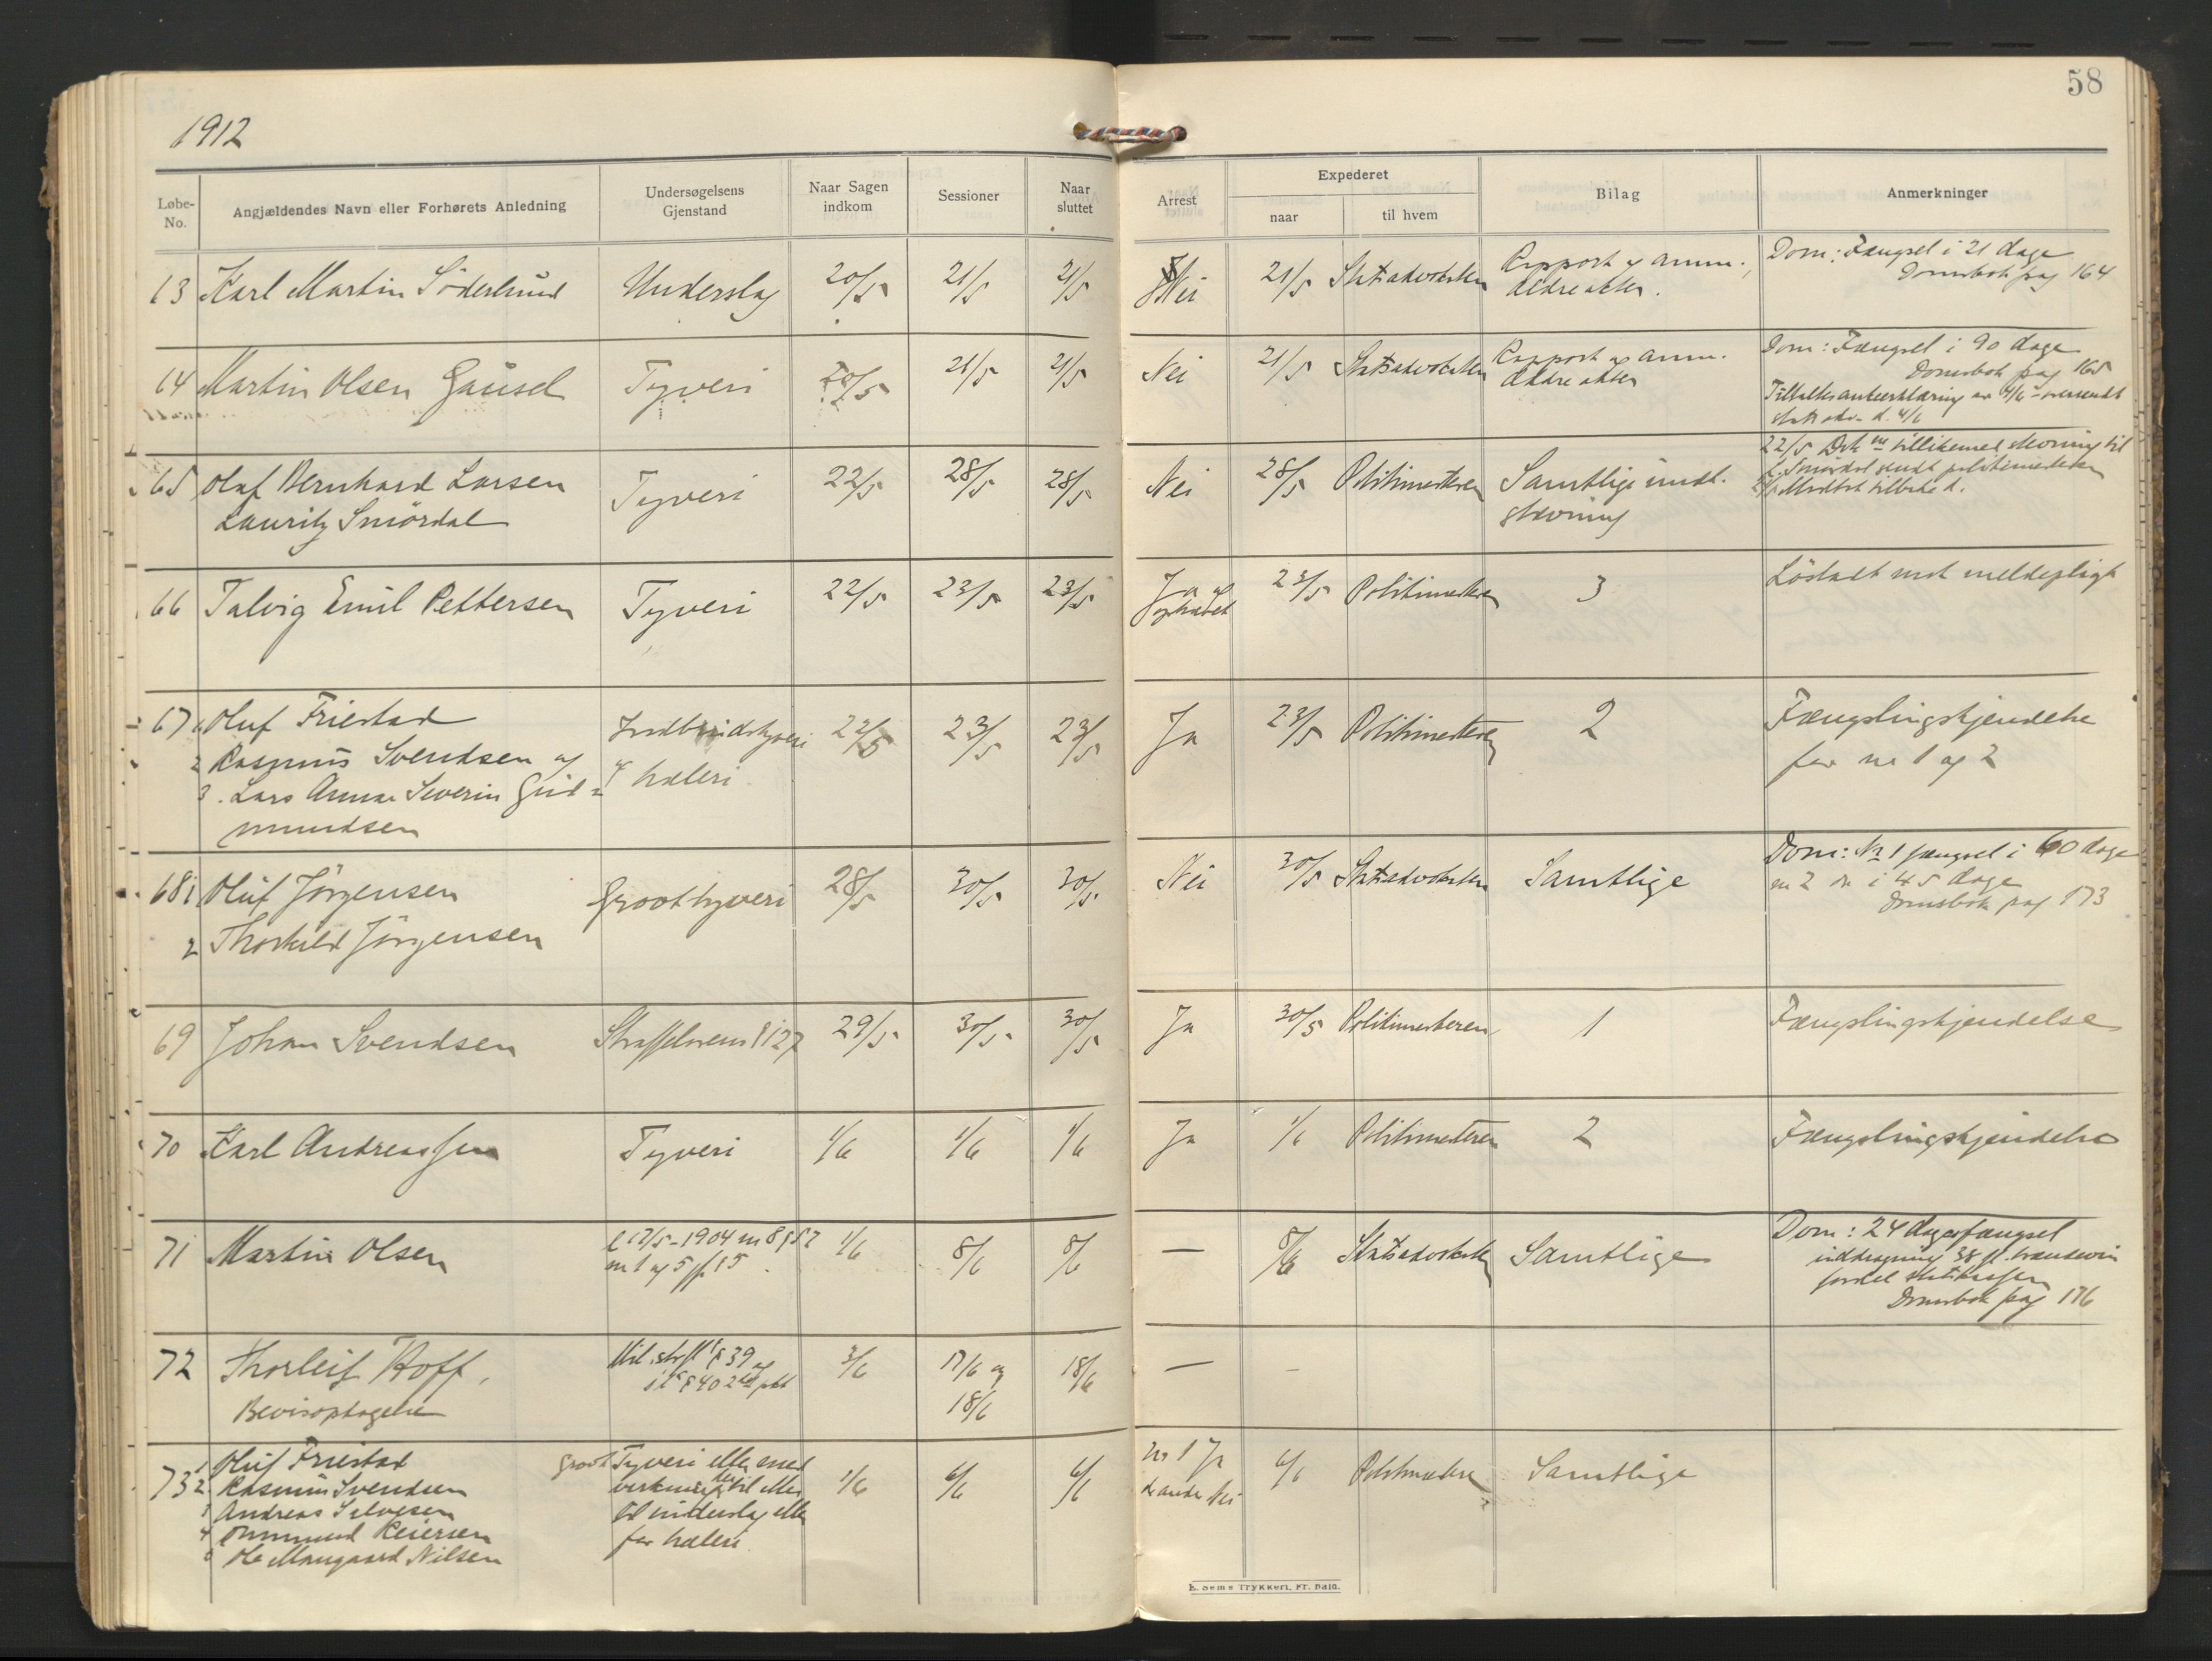 58
1912
Løbe-No. Angjældendes Navn eller Forhørets Anledning Undersøgelsens Gjenstand Naar Sagen indkom Sessioner Naar sluttet Arrest Expederet naar til hvem Bilag Anmerkninger
63 Karl Martin Söderlund Underslag 20/5 21/5 21/5 Nei 21/5 Statsadvokaten Rapport og anm. Dom: Fængsel i 21 dage
ældre akter. Domsbok pag 164
64 Martin Olsen Gausel Tyveri 20/5 21/5 21/5 Nei 21/5 Statsadvokaten Rapport og anm. Dom: Fængsel i 90 dage
Ældre akter Domsbok pag 165
4/6
d. 4/6
65 Olaf Bernhard Larsen Tyveri 22/5 28/5 28/5 Nei 28/5 Politimesteren Samtlige undt. 22/5 tillikemed stevning til
Lauritz Smördal stevning L. Smördal sendt politimesteren
tilbake d.
66 Talvig Emil Pettersen Tyveri 22/5 23/5 23/5 Ja og 23/5 Politimesteren 3 Löslatt mot meldepligt
ophævet
67 1 Oluf Friestad Indbrudstyveri 22/5 23/5 23/5 Ja 23/5 Politimesteren 2 Fængslingskjendelse
2 Rasmus Svendsen og og hæleri for nr 1 og 2
3. Lars Annar Severin Gud-
mundsen
68 1 Oluf Jörgensen Groot tyveri 28/5 30/5 30/5 Nei 30/5 Statsadvokaten Samtlige Dom: Nr 1 fængsel i 60 dage
nr 2 i 45 dage
2 Thorkild Jörgensen Domsbok pag 173
69 Johan Svendsen Straffelovens § 127 29/5 30/5 30/5 Ja 30/5 Politimesteren 1 Fængslingskjendelse
70 Karl Andreassen Tyveri 1/6 1/6 1/6 Ja 1/6 Politimesteren 2 Fængslingskjendelse
71 Martin Olsen l 17/5-1904 nr 8 § 57 1/6 8/6 8/6 — 8/6 Statsadvokaten Samtlige Dom: 24 dages fængsel
nr 1 og 5 jfr 15 inddragning 38 fl. brændevin
fordel statskassen
Domsbok pag 176
72 Thorleif Hoff, Mil. strfl § 39 og 3/6 17/6 og 18/6 — –
Bevisoptagelse § 40 2det pkt 18/6
73 1 Oluf Friestad groot Tyveri eller med- 1/6 6/6 6/6 nr 1 Ja 6/6 Politimestre Samtlige
2 Rasmus Svendsen virkning dertil eller de andre Nei
3 Andreas Salvesen til underslag eller
4 Ommund Reiersen for hæleri.
5 Ole Maugaard Nilsen
E. Sem's Trykkeri, Fr.hald.